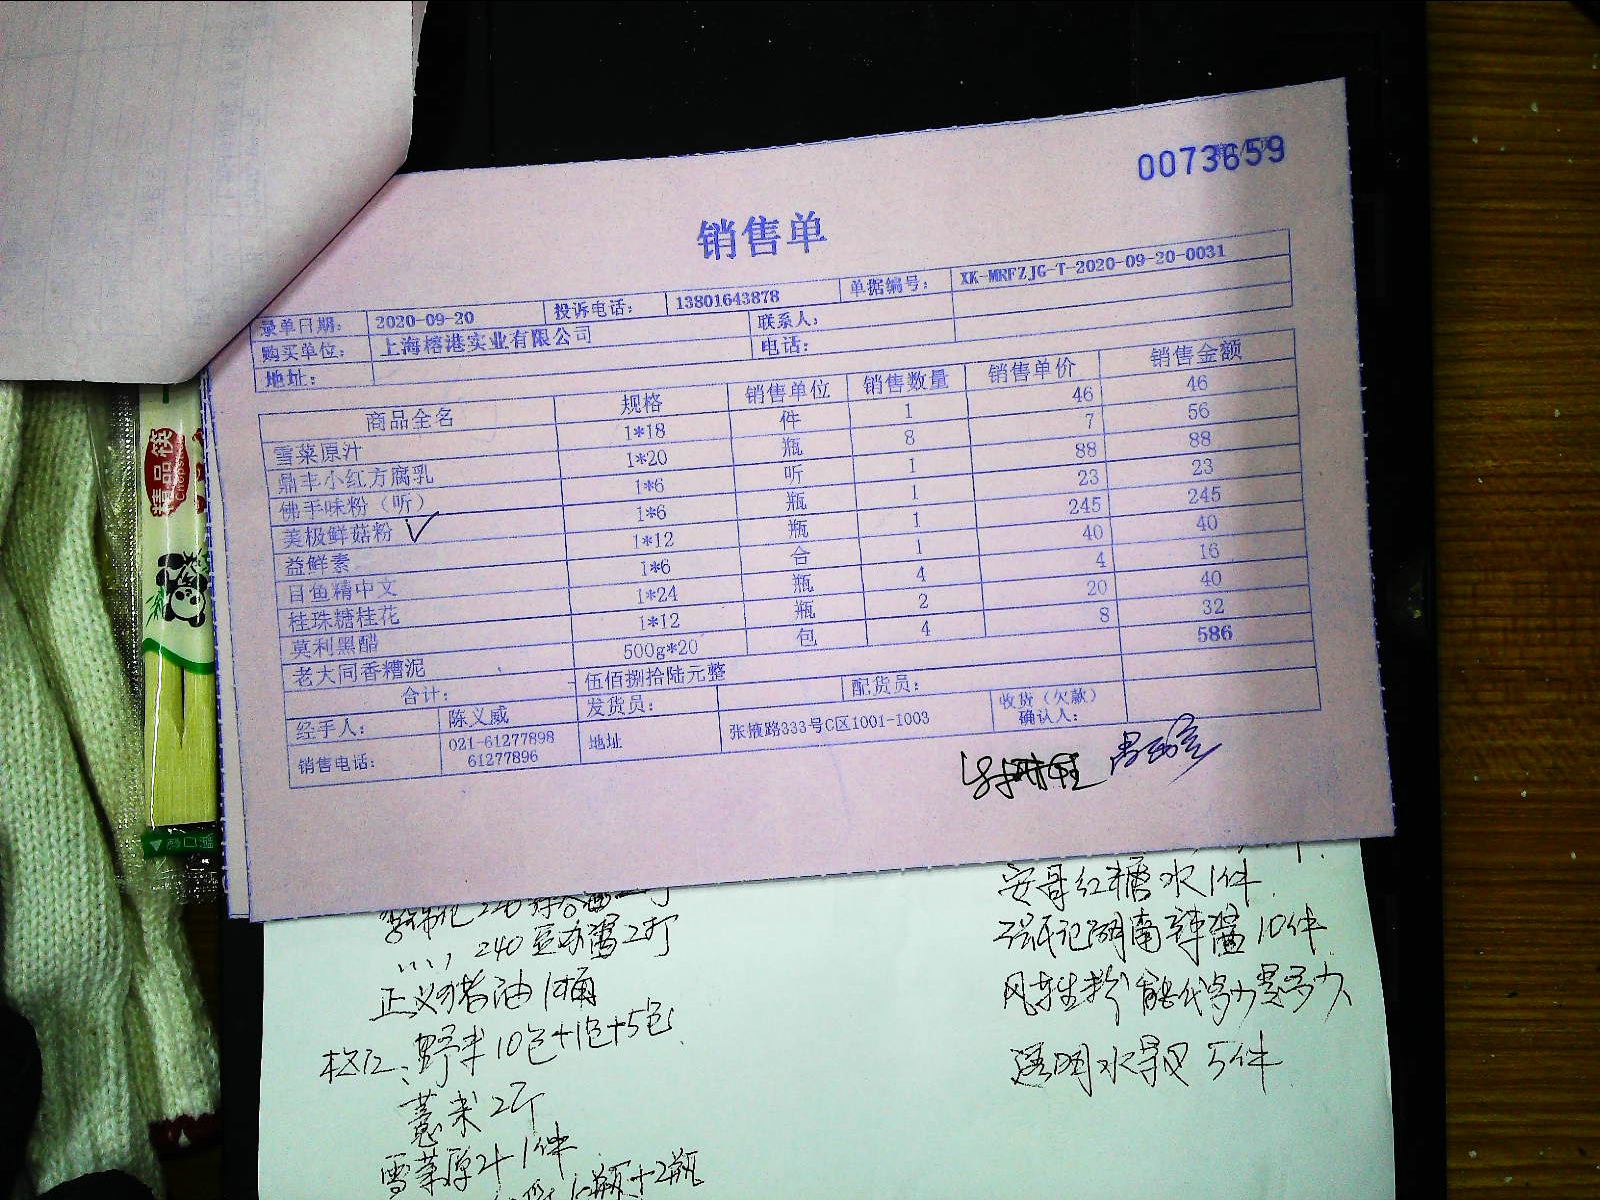 0073659
销售单
录单日期： 2020-09-20 投诉电话： 13801643878 单据编号： XK-MRFZJG-T-2020-09-20-0031
购买单位： 上海榕港实业有限公司 联系人：
地址： 电话：
商品全名 规格 销售单位 销售数量 销售单价 销售金额
雪菜原汁 1*18 件 1 46 46
鼎丰小红方腐乳 1*20 瓶 8 7 56
佛手味粉（听） 1*6 听 1 88 88
美极鲜菇粉 1*6 瓶 1 23 23
益鲜素 1*12 瓶 1 245 245
目鱼精中文 1*6 合 1 40 40
桂珠糖桂花 1*24 瓶 4 4 16
莫利黑醋 1*12 瓶 2 20 40
老大同香糟泥 500g*20 包 4 8 32
合计： 伍佰捌拾陆元整 586
经手人： 陈义威 发货员： 配货员： 收货（欠款）确认人：
销售电话： 021-61277898 地址 张掖路333号C区1001-1003
61277896
精品筷
Chopsticks
240豆捞酱2打
正义猪油1桶
野米10包+1包+5包
薏米2斤
雪菜原汁1件
1瓶+2瓶
安哥红糖水1件
湖南辣酱10件
风车生粉 能代多少要多少
透明水晶 5件